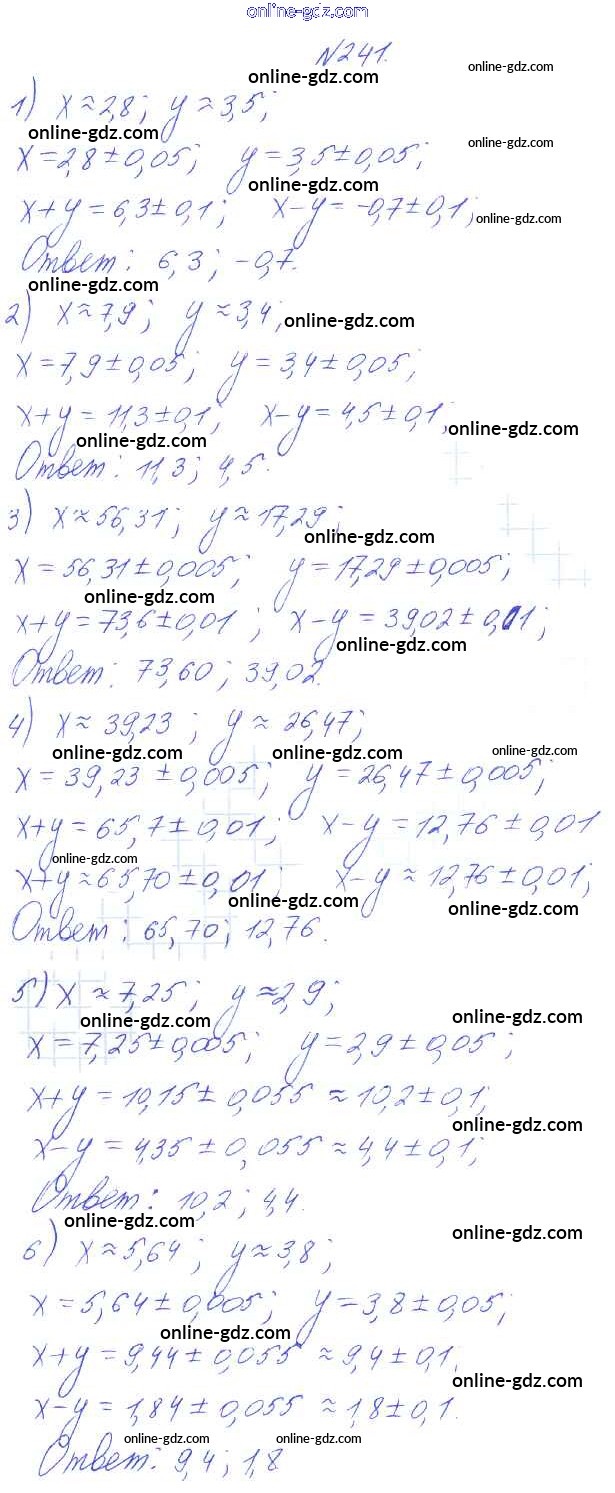 online-gdz.com
N241.
online-gdz.com online-gdz.com
1) x≈2,8; y≈3,5;
online-gdz.com online-gdz.com
x=2,8±0,05; y=3,5±0,05;
online-gdz.com
x+y=6,3±0,1; x-y=-0,7±0,1; online-gdz.com
Ответ: 6,3; -0,7.
online-gdz.com
2) x≈7,9; y≈3,4; online-gdz.com
x=7,9±0,05; y=3,4±0,05;
x+y=11,3±0,1; x-y=4,5±0,1. online-gdz.com
online-gdz.com
Ответ: 11,3; 4,5.
3) x≈56,31; y≈17,29;
online-gdz.com
x=56,31±0,005; y=17,29±0,005;
online-gdz.com
x+y=73,6±0,01; x-y=39,02±0,01;
online-gdz.com
Ответ: 73,60; 39,02.
4) x≈39,23; y≈26,47;
online-gdz.com online-gdz.com online-gdz.com
x=39,23±0,005; y=26,47±0,005;
x+y=65,7±0,01; x-y=12,76±0,01
online-gdz.com
x+y≈65,70±0,01; x-y≈12,76±0,01;
online-gdz.com online-gdz.com
Ответ: 65,70; 12,76.
5) x≈7,25; y≈2,9;
online-gdz.com online-gdz.com
x=7,25±0,005; y=2,9±0,05;
x+y=10,15±0,055≈10,2±0,1;
online-gdz.com
x-y=4,35±0,055≈4,4±0,1;
Ответ: 10,2; 4,4.
online-gdz.com online-gdz.com
6) x≈5,64; y≈3,8;
x=5,64±0,005; y=3,8±0,05;
online-gdz.com
x+y=9,44±0,055≈9,4±0,1.
online-gdz.com
x-y=1,84±0,055≈1,8±0,1.
online-gdz.com online-gdz.com
Ответ: 9,4; 1,8